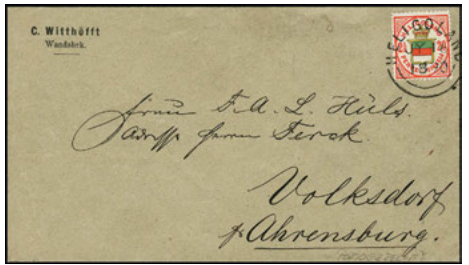 C. Witthöfft
Wandsbek.
HELIGOLAND
Frau F. A. L. Hüls.
Adresse Herrn Ferck.
Volksdorf
p Ahrensburg.